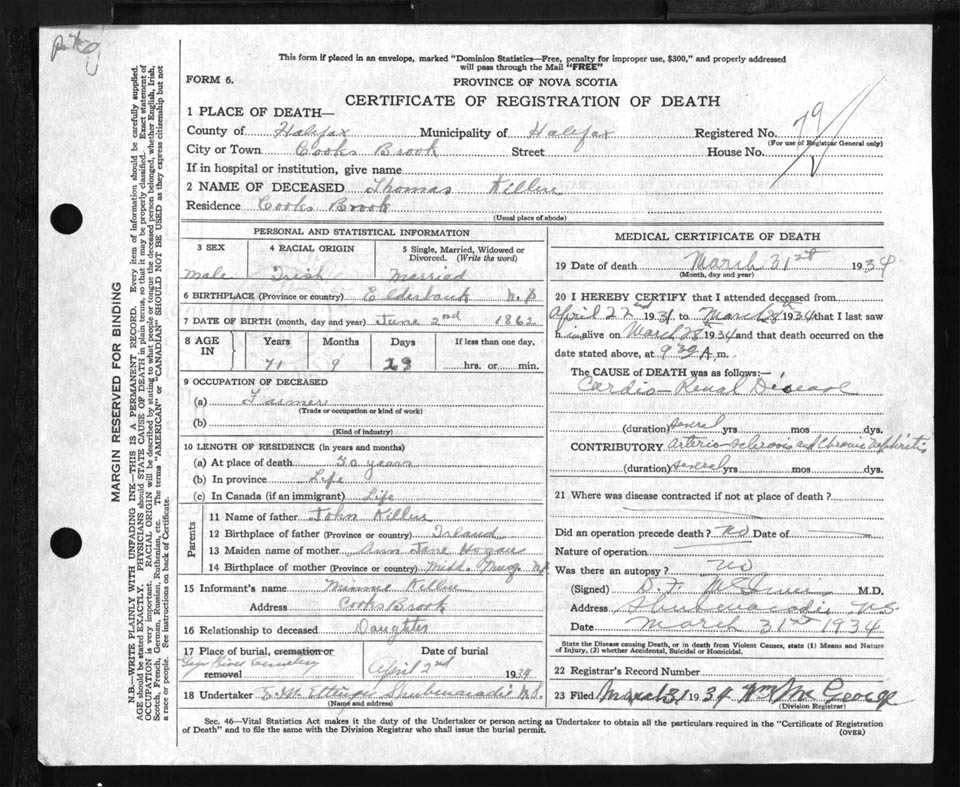 This form if placed in an envelope, marked "Dominion Statistics—Free, penalty for improper use, $300," and properly addressed
will pass through the Mail "FREE"
FORM 6.
PROVINCE OF NOVA SCOTIA
CERTIFICATE OF REGISTRATION OF DEATH
1 PLACE OF DEATH—
County of Halifax Municipality of Halifax Registered No. 79
(For use of Registrar General only)
City or Town Cooks Brook Street House No.
If in hospital or institution, give name
2 NAME OF DECEASED Thomas Killen
Residence Cooks Brook
(Usual place of abode)
PERSONAL AND STATISTICAL INFORMATION
3 SEX 4 RACIAL ORIGIN 5 Single, Married, Widowed or
Divorced. (Write the word)
Male Irish Married
6 BIRTHPLACE (Province or country) Elderbank N.S
7 DATE OF BIRTH (month, day and year) June 2nd 1862
8 AGE IN Years Months Days If less than one day,
71 9 29 hrs. or min.
9 OCCUPATION OF DECEASED
(a) Farmer
(Trade or occupation or kind of work)
(b)
(Kind of industry)
10 LENGTH OF RESIDENCE (in years and months)
(a) At place of death 50 years
(b) In province Life
(c) In Canada (if an immigrant) Life
Parents
11 Name of father John Killen
12 Birthplace of father (Province or country) Irland
13 Maiden name of mother Ann Jane Hogan
14 Birthplace of mother (Province or country) Midd. Musq. N.S
15 Informant's name Minnie Killen
Address Cooks Brook
16 Relationship to deceased Daughter
17 Place of burial, cremation or Date of burial
Cemetery
removal April 2nd 1934
18 Undertaker E. M. Ettinger Shubenacadie N.S.
(Name and address)
MEDICAL CERTIFICATE OF DEATH
19 Date of death March 31st 1934
(Month, day and year)
20 I HEREBY CERTIFY that I attended deceased from
April 22nd 1931 to March 28th 1934 that I last saw
h im alive on March 28th 1934 and that death occurred on the
date stated above, at 9 30 A.m.
The CAUSE of DEATH was as follows:—
Cardio-Renal Disease
(duration) several yrs mos dys.
CONTRIBUTORY arterio-sclerosis and Chronic nephritis
(duration) several yrs. mos dys.
21 Where was disease contracted if not at place of death?
Did an operation precede death? no Date of
Nature of operation
Was there an autopsy? no
(Signed) D. F. M.D.
Address Shubenacadie N.S.
Date March 31st 1934
State the Disease causing Death, or in death from Violent Causes, state (1) Means and Nature
of Injury, (2) whether Accidental, Suicidal or Homicidal.
22 Registrar's Record Number
23 Filed March 31 1934 Wm Mc George
(Division Registrar)
Sec. 46—Vital Statistics Act makes it the duty of the Undertaker or person acting as Undertaker to obtain all the particulars required in the "Certificate of Registration
of Death" and to file the same with the Division Registrar who shall issue the burial permit.
(OVER)
MARGIN RESERVED FOR BINDING
N.B.—WRITE PLAINLY WITH UNFADING INK—THIS IS A PERMANENT RECORD. Every item of information should be carefully supplied.
AGE should be stated EXACTLY. PHYSICIANS should STATE CAUSE OF DEATH in plain terms, so that it may be properly classified. Exact statement of
OCCUPATION is very important. RACIAL ORIGIN will be described by stating to what people or tongue the deceased person belonged, whether English, Irish,
Scotch, French, German, Russian, Ruthenian, etc. The terms "AMERICAN" or "CANADIAN" SHOULD NOT BE USED as they express citizenship but not
a race or people. See instructions on back of Certificate.